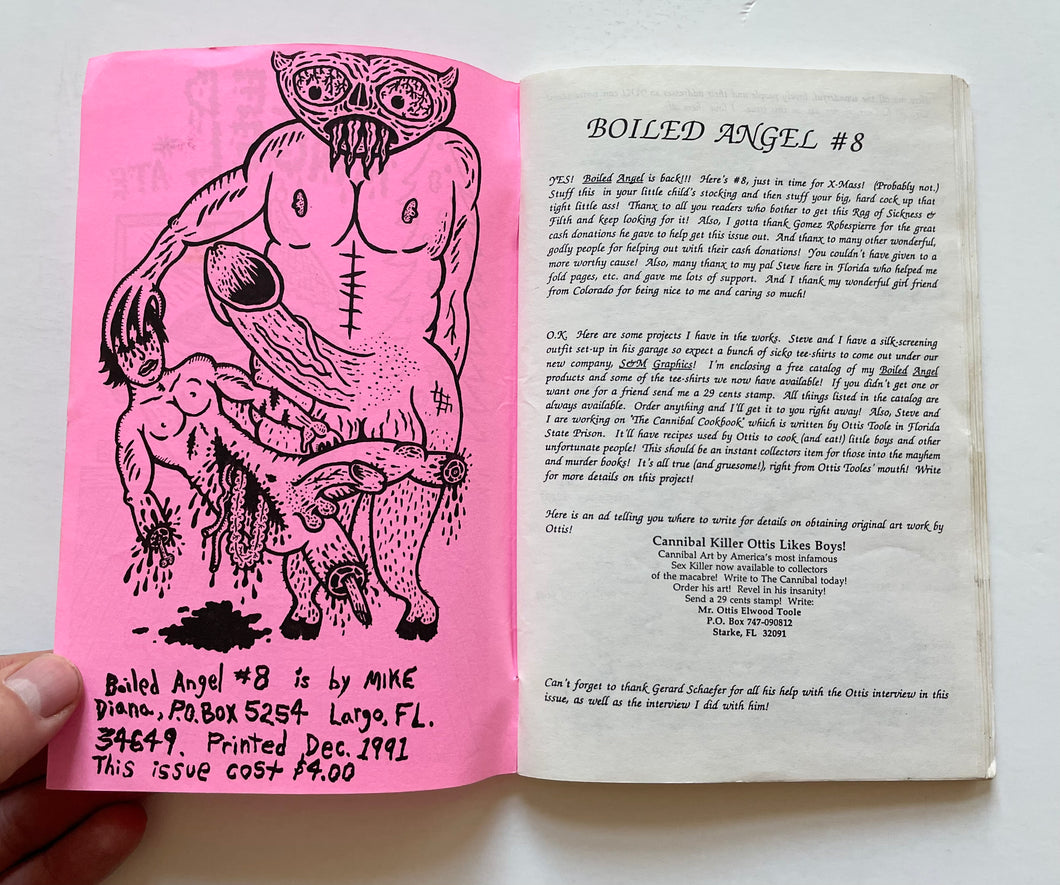 Boiled Angel #8 is by MIKE
Diana, P.O. Box 5254 Largo, FL.
34649. Printed Dec. 1991
This issue cost $4.00
BOILED ANGEL #8
YES! Boiled Angel is back!!! Here's #8, just in time for X-Mass! (Probably not.)
Thanx to all you readers who bother to get this Rag of Sickness &
Filth and keep looking for it! Also, I gotta thank Gomez Robespierre for the great
cash donations he gave to help get this issue out. And thanx to many other wonderful,
godly people for helping out with their cash donations! You couldn't have given to a
more worthy cause! Also, many thanx to my pal Steve here in Florida who helped me
fold pages, etc. and gave me lots of support. And I thank my wonderful girl friend
from Colorado for being nice to me and caring so much!
O.K. Here are some projects I have in the works. Steve and I have a silk-screening
outfit set-up in his garage so expect a bunch of sicko tee-shirts to come out under our
new company, S&M Graphics! I'm enclosing a free catalog of my Boiled Angel
products and some of the tee-shirts we now have available! If you didn't get one or
want one for a friend send me a 29 cents stamp. All things listed in the catalog are
always available. Order anything and I'll get it to you right away! Also, Steve and
I are working on 'The Cannibal Cookbook' which is written by Ottis Toole in Florida
State Prison. It'll have recipes used by Ottis to cook (and eat!) little boys and other
unfortunate people! This should be an instant collectors item for those into the mayhem
and murder books! It's all true (and gruesome!), right from Ottis Tooles' mouth! Write
for more details on this project!
Here is an ad telling you where to write for details on obtaining original art work by
Ottis!
Cannibal Killer Ottis Likes Boys!
Cannibal Art by America's most infamous
Sex Killer now available to collectors
of the macabre! Write to The Cannibal today!
Order his art! Revel in his insanity!
Send a 29 cents stamp! Write:
Mr. Ottis Elwood Toole
P.O. Box 747-090812
Starke, FL 32091
Can't forget to thank Gerard Schaefer for all his help with the Ottis interview in this
issue, as well as the interview I did with him!